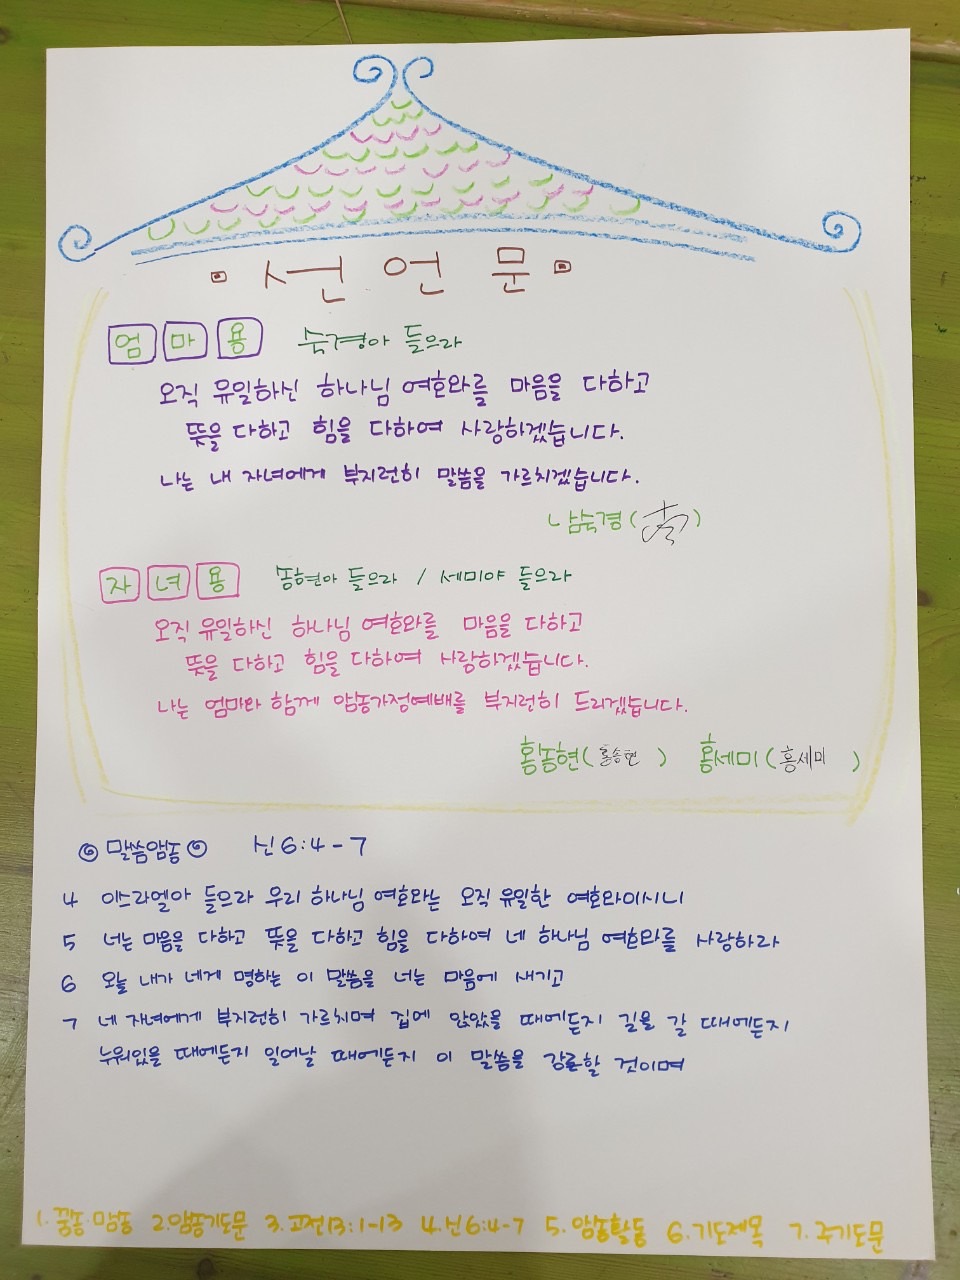 선언문
엄마용 숙경아 들으라
오직 유일하신 하나님 여호와를 마음을 다하고
뜻을 다하고 힘을 다하여 사랑하겠습니다.
나는 내 자녀에게 부지런히 말씀을 가르치겠습니다.
남숙경( )
자녀용 송현아 들으라 / 세미야 들으라
오직 유일하신 하나님 여호와를 마음을 다하고
뜻을 다하고 힘을 다하여 사랑하겠습니다.
나는 엄마와 함께 암송가정예배를 부지런히 드리겠습니다.
홍송현(홍송현 ) 홍세미(홍세미 )
말씀암송 신6:4-7
4 이스라엘아 들으라 우리 하나님 여호와는 오직 유일한 여호와이시니
5 너는 마음을 다하고 뜻을 다하고 힘을 다하여 네 하나님 여호와를 사랑하라
6 오늘 내가 네게 명하는 이 말씀을 너는 마음에 새기고
7 네 자녀에게 부지런히 가르치며 집에 앉았을 때에든지 길을 갈 때에든지
누워있을 때에든지 일어날 때에든지 이 말씀을 강론할 것이며
1. 맘송 2.암송기도문 3.고전13:1-13 4.신6:4-7 5.암송활동 6.기도제목 7.주기도문